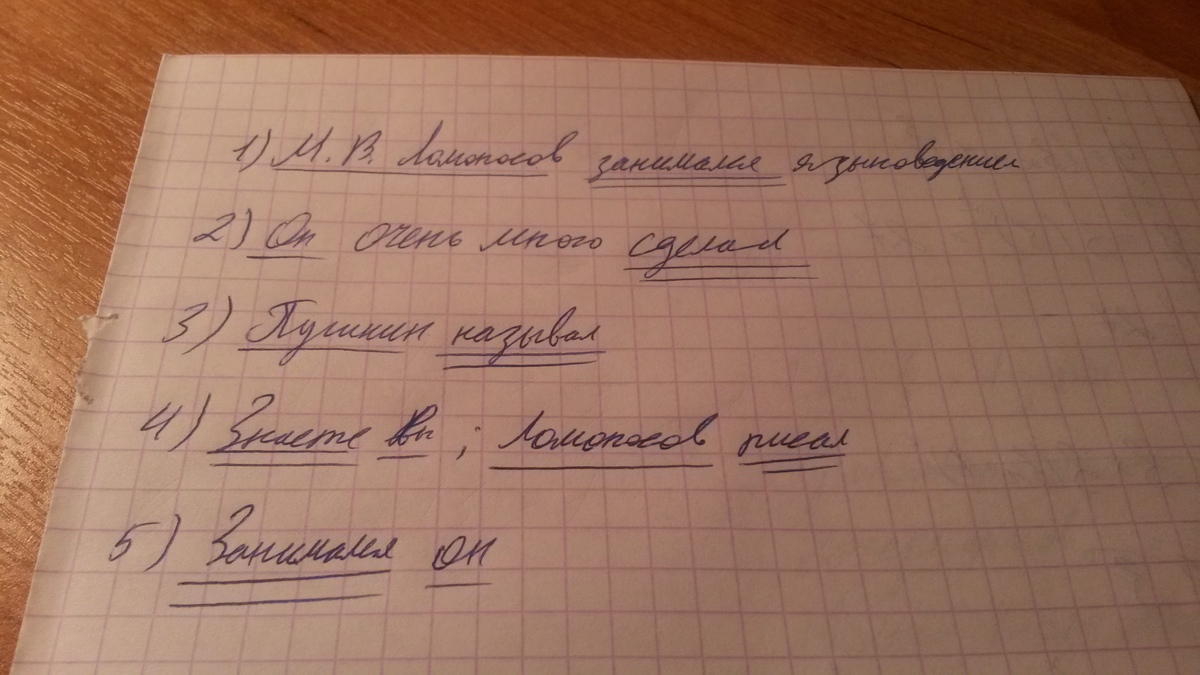 1) М. В. Ломоносов занимался языковедением
2) Он очень много сделал
3) Пушкин называл
4) Знаете Вы ; Ломоносов писал
5) Занимался он